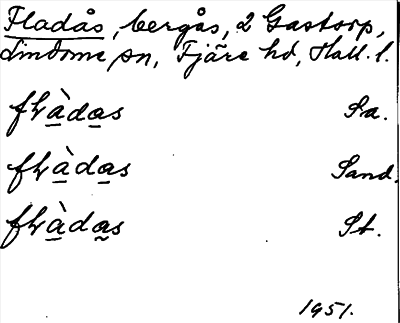 Fladås, bergås, 2 Gastorp,
Lindome sn, Fjäre hd, Hall. l.
flàdas Sa.
flàdas Sand.
flàdas St.
1951.